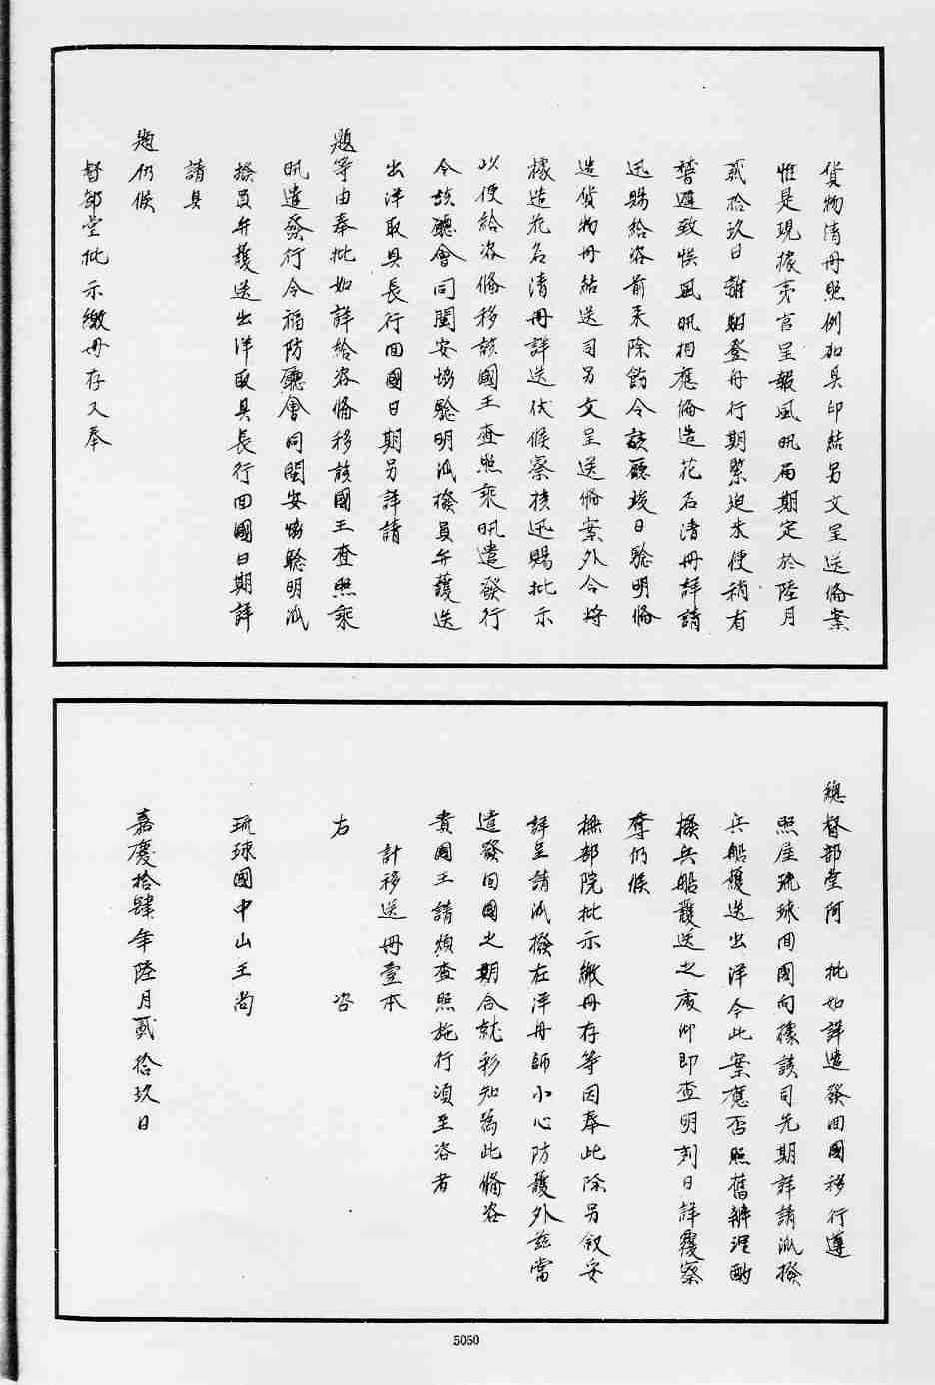 貨物清冊照例加具印結另文呈送俻案
惟是現據夷官呈報風汛届期定於陸月
貳拾玖日離驛登舟行期緊迫未便稍有
躭遲致悞風汛相應俻造花名清冊詳請
迅賜給咨前来除飭令該廳竣日騐明俻
造貨物冊結送司另文呈送俻案外合將
據造花名清冊詳送伏候察核迅賜批示
以便給咨俻移該國王查照乘汛遣發行
令該廳會同閩安協騐明派撥員弁護送
出洋取具長行回國日期另詳請
題等由奉批如詳給咨俻移該國王查照乘
汛遣發行令福防廳會同閩安協騐明派
撥員弁護送出洋取具長行回國日期詳
請具
題仍候
督部堂批示繳冊存又奉
總督部堂阿 批如詳遣發回國移行遵
照屋琉球回國向據該司先期詳請派撥
兵船護送出洋今此案應否照舊辦理酌
撥兵船護送之處仰即查明刻日詳覆察
奪仍候
撫部院批示繳冊存等因奉此除另叙妥
詳呈請派撥在洋舟師小心防護外兹當
遣發回國之期合就移知為此俻咨
貴國王請煩查照施行須至咨者
計移送冊壹本
右 咨
琉球國中山王尚
嘉慶拾肆年陸月貳拾玖日
5050